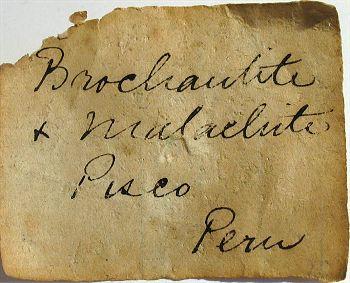 Brochantite
& Malachite
Pisco
Peru